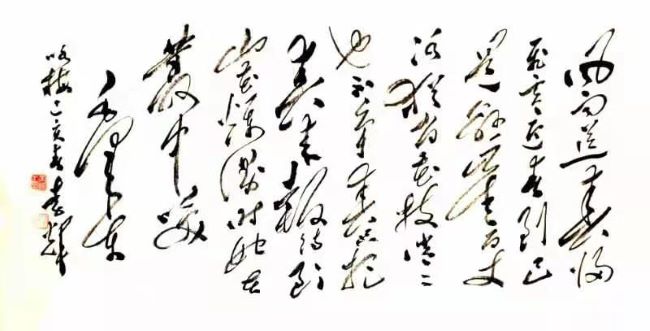 风雨送春归
飞雪迎春到已
是悬崖百丈
冰犹有花枝俏〻
也不争春只把
春来报待到
山花烂漫时她在
丛中笑
毛泽东
咏梅 亥春